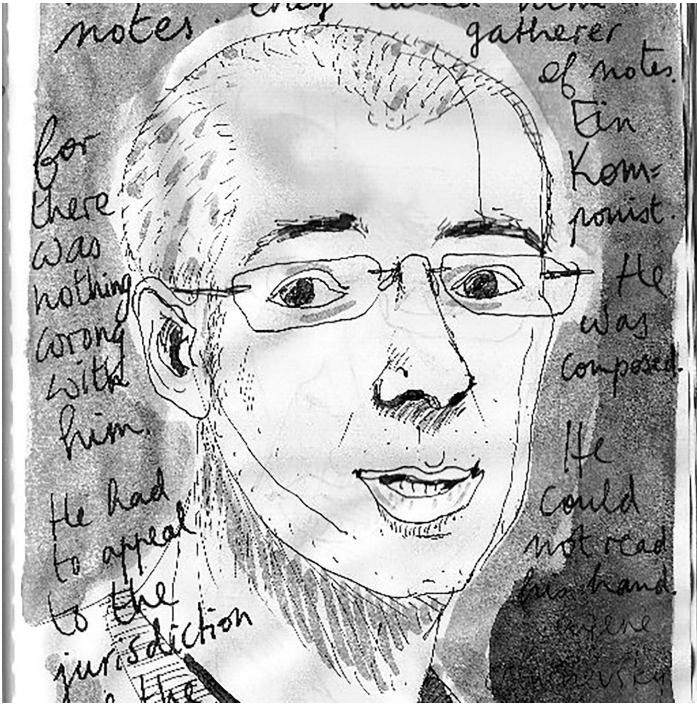 notes. they called him
gatherer
of notes.
Ein
Kom=
ponist.
He
was
composed.
He
could
not read
his hand.
for
there
was
nothing
wrong
with
him.
He had
to appeal
to the
jurisdiction
the